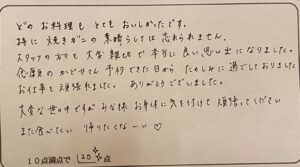 どのお料理も とてもおいしかったです。
特に 焼きガニの 素晴らしさは 忘れられません。
スタッフの方々も 大変 親切で 本当に 良い思い出になりました。
念願の かどやさん 予約できた日から たのしみに 過ごしておりました
お仕事も 頑張れました。ありがとうございました。
大変な世の中ですが みな様 お身体に 気を付けて 頑張ってください
また食べたい 帰りたくなーい ♡
10点満点で 120点